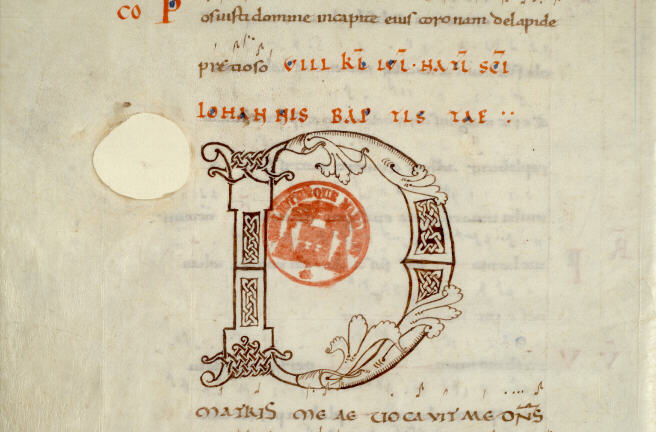 CO Posuisti domine in capite eius coronam de lapide
pretioso VIII KL IVL · NAT SCI
IOHANNIS BAPTISTAE
D
MATRIS MEAE VOCAVIT ME DNS